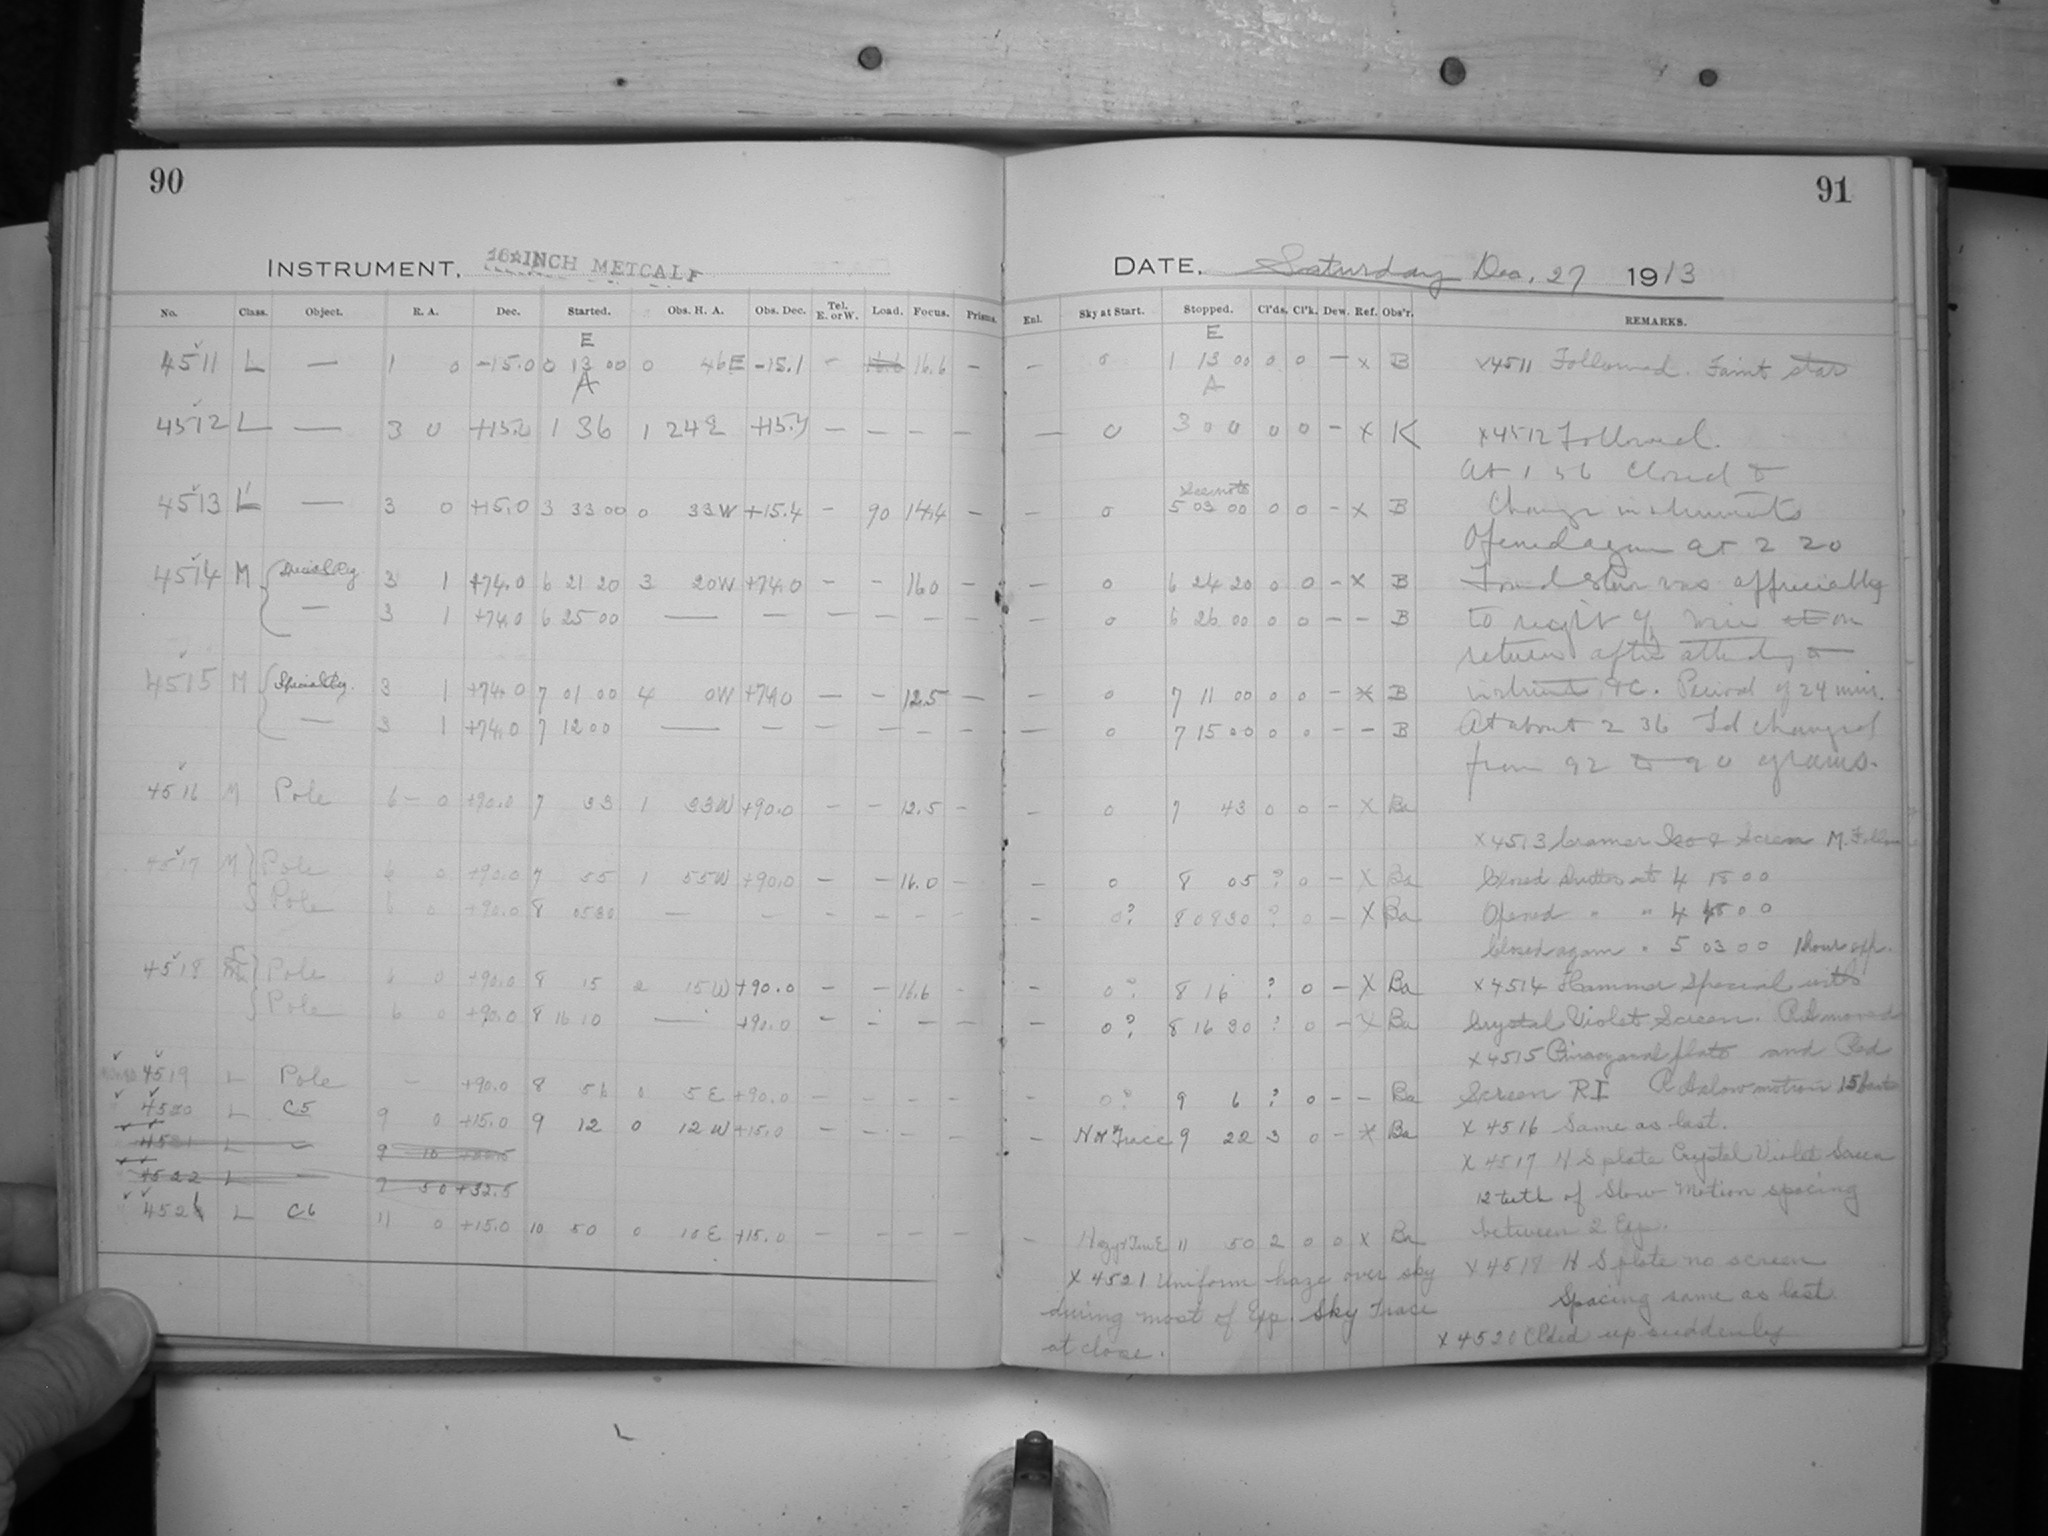 90
91
INSTRUMENT. 16 INCH METCALF
DATE. Saturday Dec. 27 1913
No. Class. Object. R. A. Dec. Started. Obs. H. A. Obs. Dec. Tel. E. or W. Load. Focus. Prisms.
Enl. Sky at Start. Stopped. Cl'ds. Cl'k. Dew. Ref. Obs'r. REMARKS.
E
E
4511 L — 1 0 -15.0 0 13 00 0 46E -15.1 - 16.6 16.6 —
— 0 1 13 00 0 0 — x B x4511 Followed. Faint star
A
A
4512 L — 3 0 +15.0 1 36 1 24E +15.4 — — — —
— 0 3 0 0 0 0 - x K x4512 Followed.
At 1 56 Closed to
4513 L — 3 0 +15.0 3 33 00 0 33W +15.4 - 90 14.4 —
See note
— 0 5 03 00 0 0 - x B Change instruments
Opened again at 2 20
4514 M Special Reg. 3 1 +74.0 6 21 20 3 20W +74.0 - - 16.0 —
— 0 6 24 20 0 0 - x B Found star was appreciably
— 3 1 +74.0 6 25 00 — — — — — —
— 0 6 26 00 0 0 - - B to right of wire on
return after attending to
4515 M Special Reg. 3 1 +74.0 7 01 00 4 0W +74.0 — - 12.5 —
0 7 11 00 0 0 - x B instrument I C. Period of 24 min.
— 3 1 +74.0 7 12 00 — — — — — —
— 0 7 15 00 0 0 - - B At about 2 36 Ld changed
from 92 to 90 grams.
4516 M Pole 6 — 0 +90.0 7 33 1 33W +90.0 — — 12.5 —
— 0 7 43 0 0 - X Ba
x4513 Cramer Iso & Screen M. Follow
4517 M Pole 6 0 +90.0 7 55 1 55W +90.0 — — 16.0 —
— 0 8 05 ? 0 - X Ba Closed Shutter at 4 18 00
Pole 6 0 +90.0 8 0530 — — — — — —
— 0? 8 0830 ? 0 - X Ba Opened " " 4 48 00
Closed again " 5 03 00 1 hour exp.
4518 L Pole 6 0 +90.0 8 15 2 15W +90.0 — — 16.6 -
— 0? 8 16 ? 0 - X Ba x4514 Hammer Special with
Pole 6 0 +90.0 8 16 10 — +90.0 — — — —
— 0? 8 16 30 ? 0 - X Ba Crystal Violet Screen. Pl. moved
x4515 Pinacyanal plate and Red
4519 L Pole — +90.0 8 56 0 5E +90.0 — — — —
- 0? 9 6 ? 0 - - Ba Screen RI Pl. slow motion 15 teeth
4520 L C5 9 0 +15.0 9 12 0 12W +15.0 — — — —
— 9 22 3 0 - X Ba X 4516 Same as last.
4521 L — 9 10
X 4517 H S plate Crystal Violet Screen
4522 L — 9 50 +32.5
12 teeth of Slow Motion spacing
4521 L C6 11 0 +15.0 10 50 0 10E +15.0 — — — —
between 2 Exp.
- 11 50 2 0 0 X Ba
X 4518 H S plate no screen
X 4521 Uniform haze over sky
Spacing same as last.
during most of Exp. Sky Trace
at close.
X 4520 Clded up suddenly